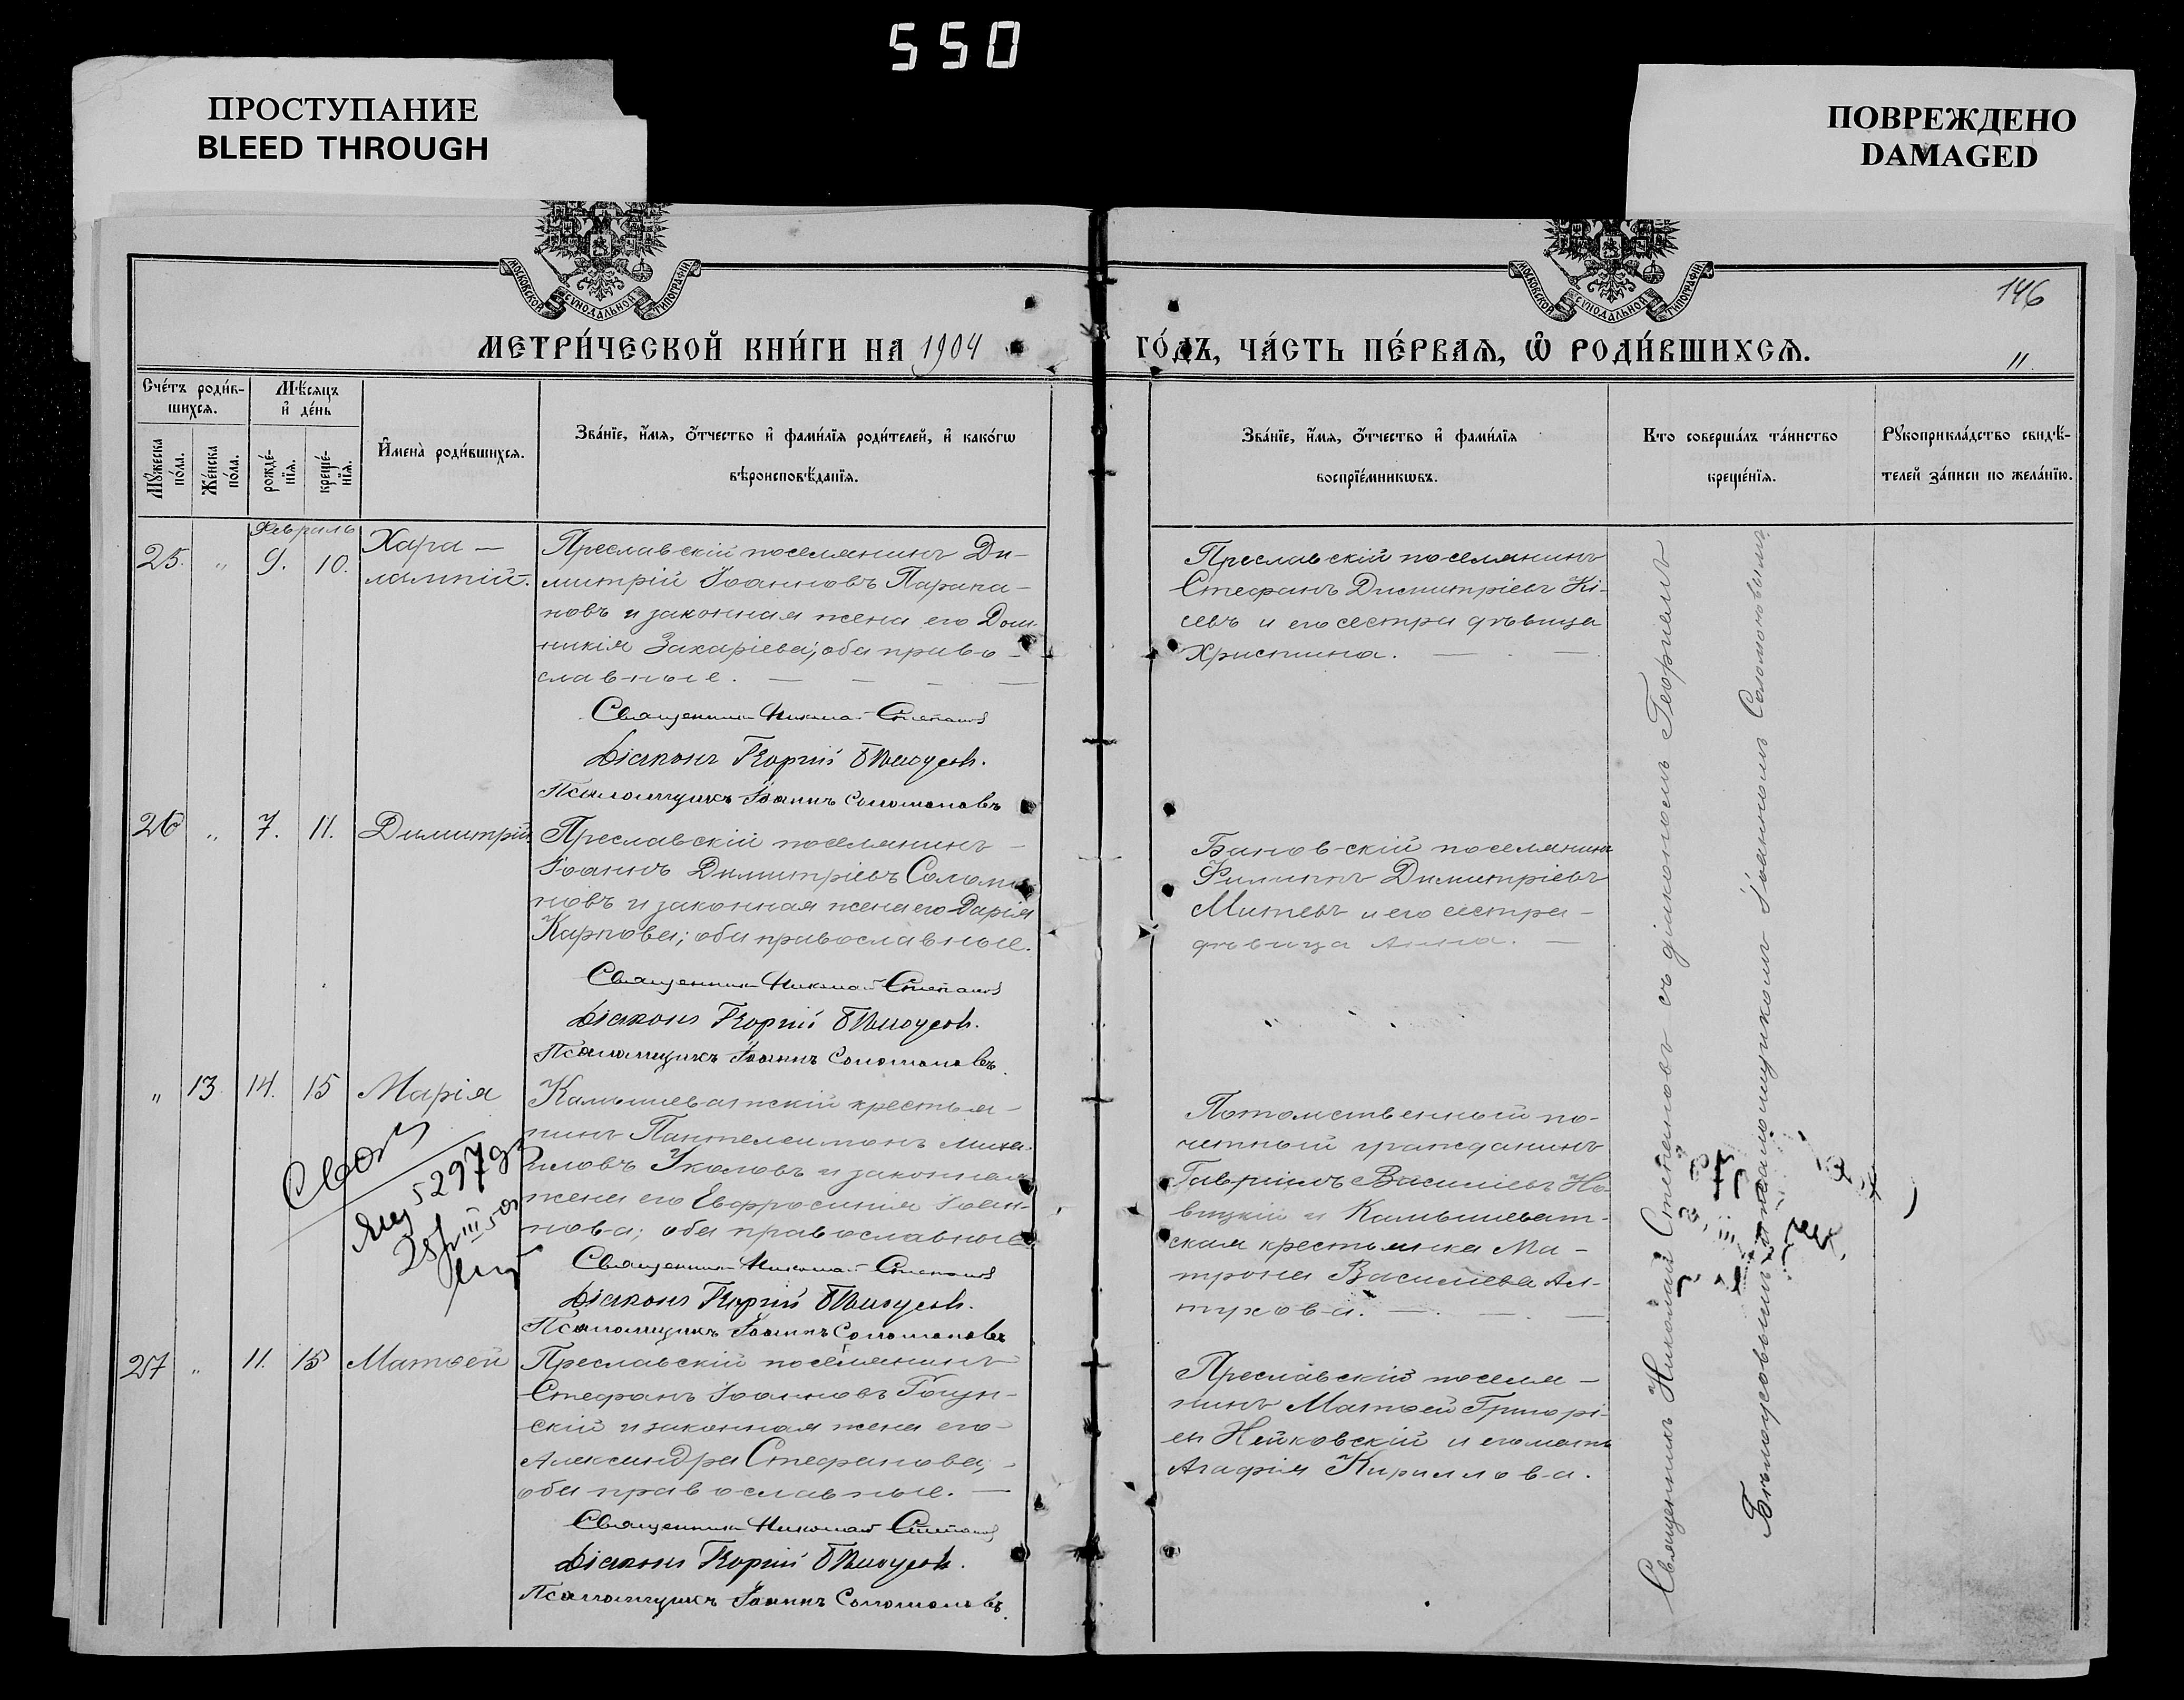 550
ПРОСТУПАНИЕ
BLEED THROUGH
ПОВРЕЖДЕНО
DAMAGED
МОСКОВСКОЙ СѴНОДАЛЬНОЙ ТИПОГРАФІИ
МОСКОВСКОЙ СѴНОДАЛЬНОЙ ТИПОГРАФІИ
146
МЕТРИ́ЧЕСКОЙ КНИ́ГИ НА 1904
ГО́ДЪ, ЧА́СТЬ ПЕ́РВАѦ, Ѽ РОДИ́ВШИХСѦ.
11.
Сче́тъ роди́в-
шихсѧ.
Мѣ́сѧцъ
и҆ де́нь
Мꙋ́жеска
по́ла.
Же́нска
по́ла.
рожде́-
нїѧ.
креще́-
нїѧ.
И҆мена̀ роди́вшихсѧ.
Зва́нїе, и҆́мѧ, ѻ҆́тчество и҆ фами́лїѧ роди́телей, и҆ како́гѡ
вѣроисповѣ́данїѧ.
Зва́нїе, и҆́мѧ, ѻ҆́тчество и҆ фами́лїѧ
воспрїе́мникѡвъ.
Кто соверша́лъ та́инство
креще́нїѧ.
Рꙋкоприкла́дство свидѣ́-
телей за́писи по жела́нїю.
Февраль
25. " 9. 10. Хара-
лампій.
Преславскій поселянинъ Ди-
митрій Іоанновъ Парапа-
новъ и законная жена его Дом-
никія Захаріева; оба право-
славные.
Священникъ Николай Степановъ
Діаконъ Георгій Бѣлоусовъ.
Псаломщикъ Іоаннъ Соломоновъ
Преславскій поселянинъ
Стефанъ Димитріевъ Кі-
севъ и его сестра дѣвица
Христина.
26 " 7. 11. Димитрій
Преславскій поселянинъ
Іоаннъ Димитріевъ Соломо-
новъ и законная жена его Дарія
Карпова; оба православные.
Священникъ Николай Степановъ
Діаконъ Георгій Бѣлоусовъ.
Псаломщикъ Іоаннъ Соломоновъ.
Бановскій поселянинъ
Филиппъ Димитріевъ
Митевъ и его сестра
дѣвица Анна.
" 13 14. 15 Марія
Камышеватскій крестья-
нинъ Пантелеимонъ Миха-
иловъ Уколовъ и законная
жена его Евфросинія Іоан-
нова; оба православные
Священникъ Николай Степановъ
Діаконъ Георгій Бѣлоусовъ.
Псаломщикъ Іоаннъ Соломоновъ
Потомственный по-
четный гражданинъ
Гавріилъ Василіевъ Но-
вицкій и Камышеват-
ская крестьянка Ма-
трона Василіева Ал-
тухова.
27 " 11. 15 Матѳей
Преславскій поселянинъ
Стефанъ Іоанновъ
скій и законная жена его
Александра Стефанова;
оба православные.
Священникъ Николай Степановъ
Діаконъ Георгій Бѣлоусовъ.
Псаломщикъ Іоаннъ Соломоновъ.
Преславскій поселя-
нинъ Матѳей Григорі-
евъ Нейковскій и его мать
Агафія Кириллова.
Священникъ Николай Степановъ съ діакономъ Георгіемъ
Бѣлоусовымъ и псаломщикомъ Іоанномъ Соломоновымъ